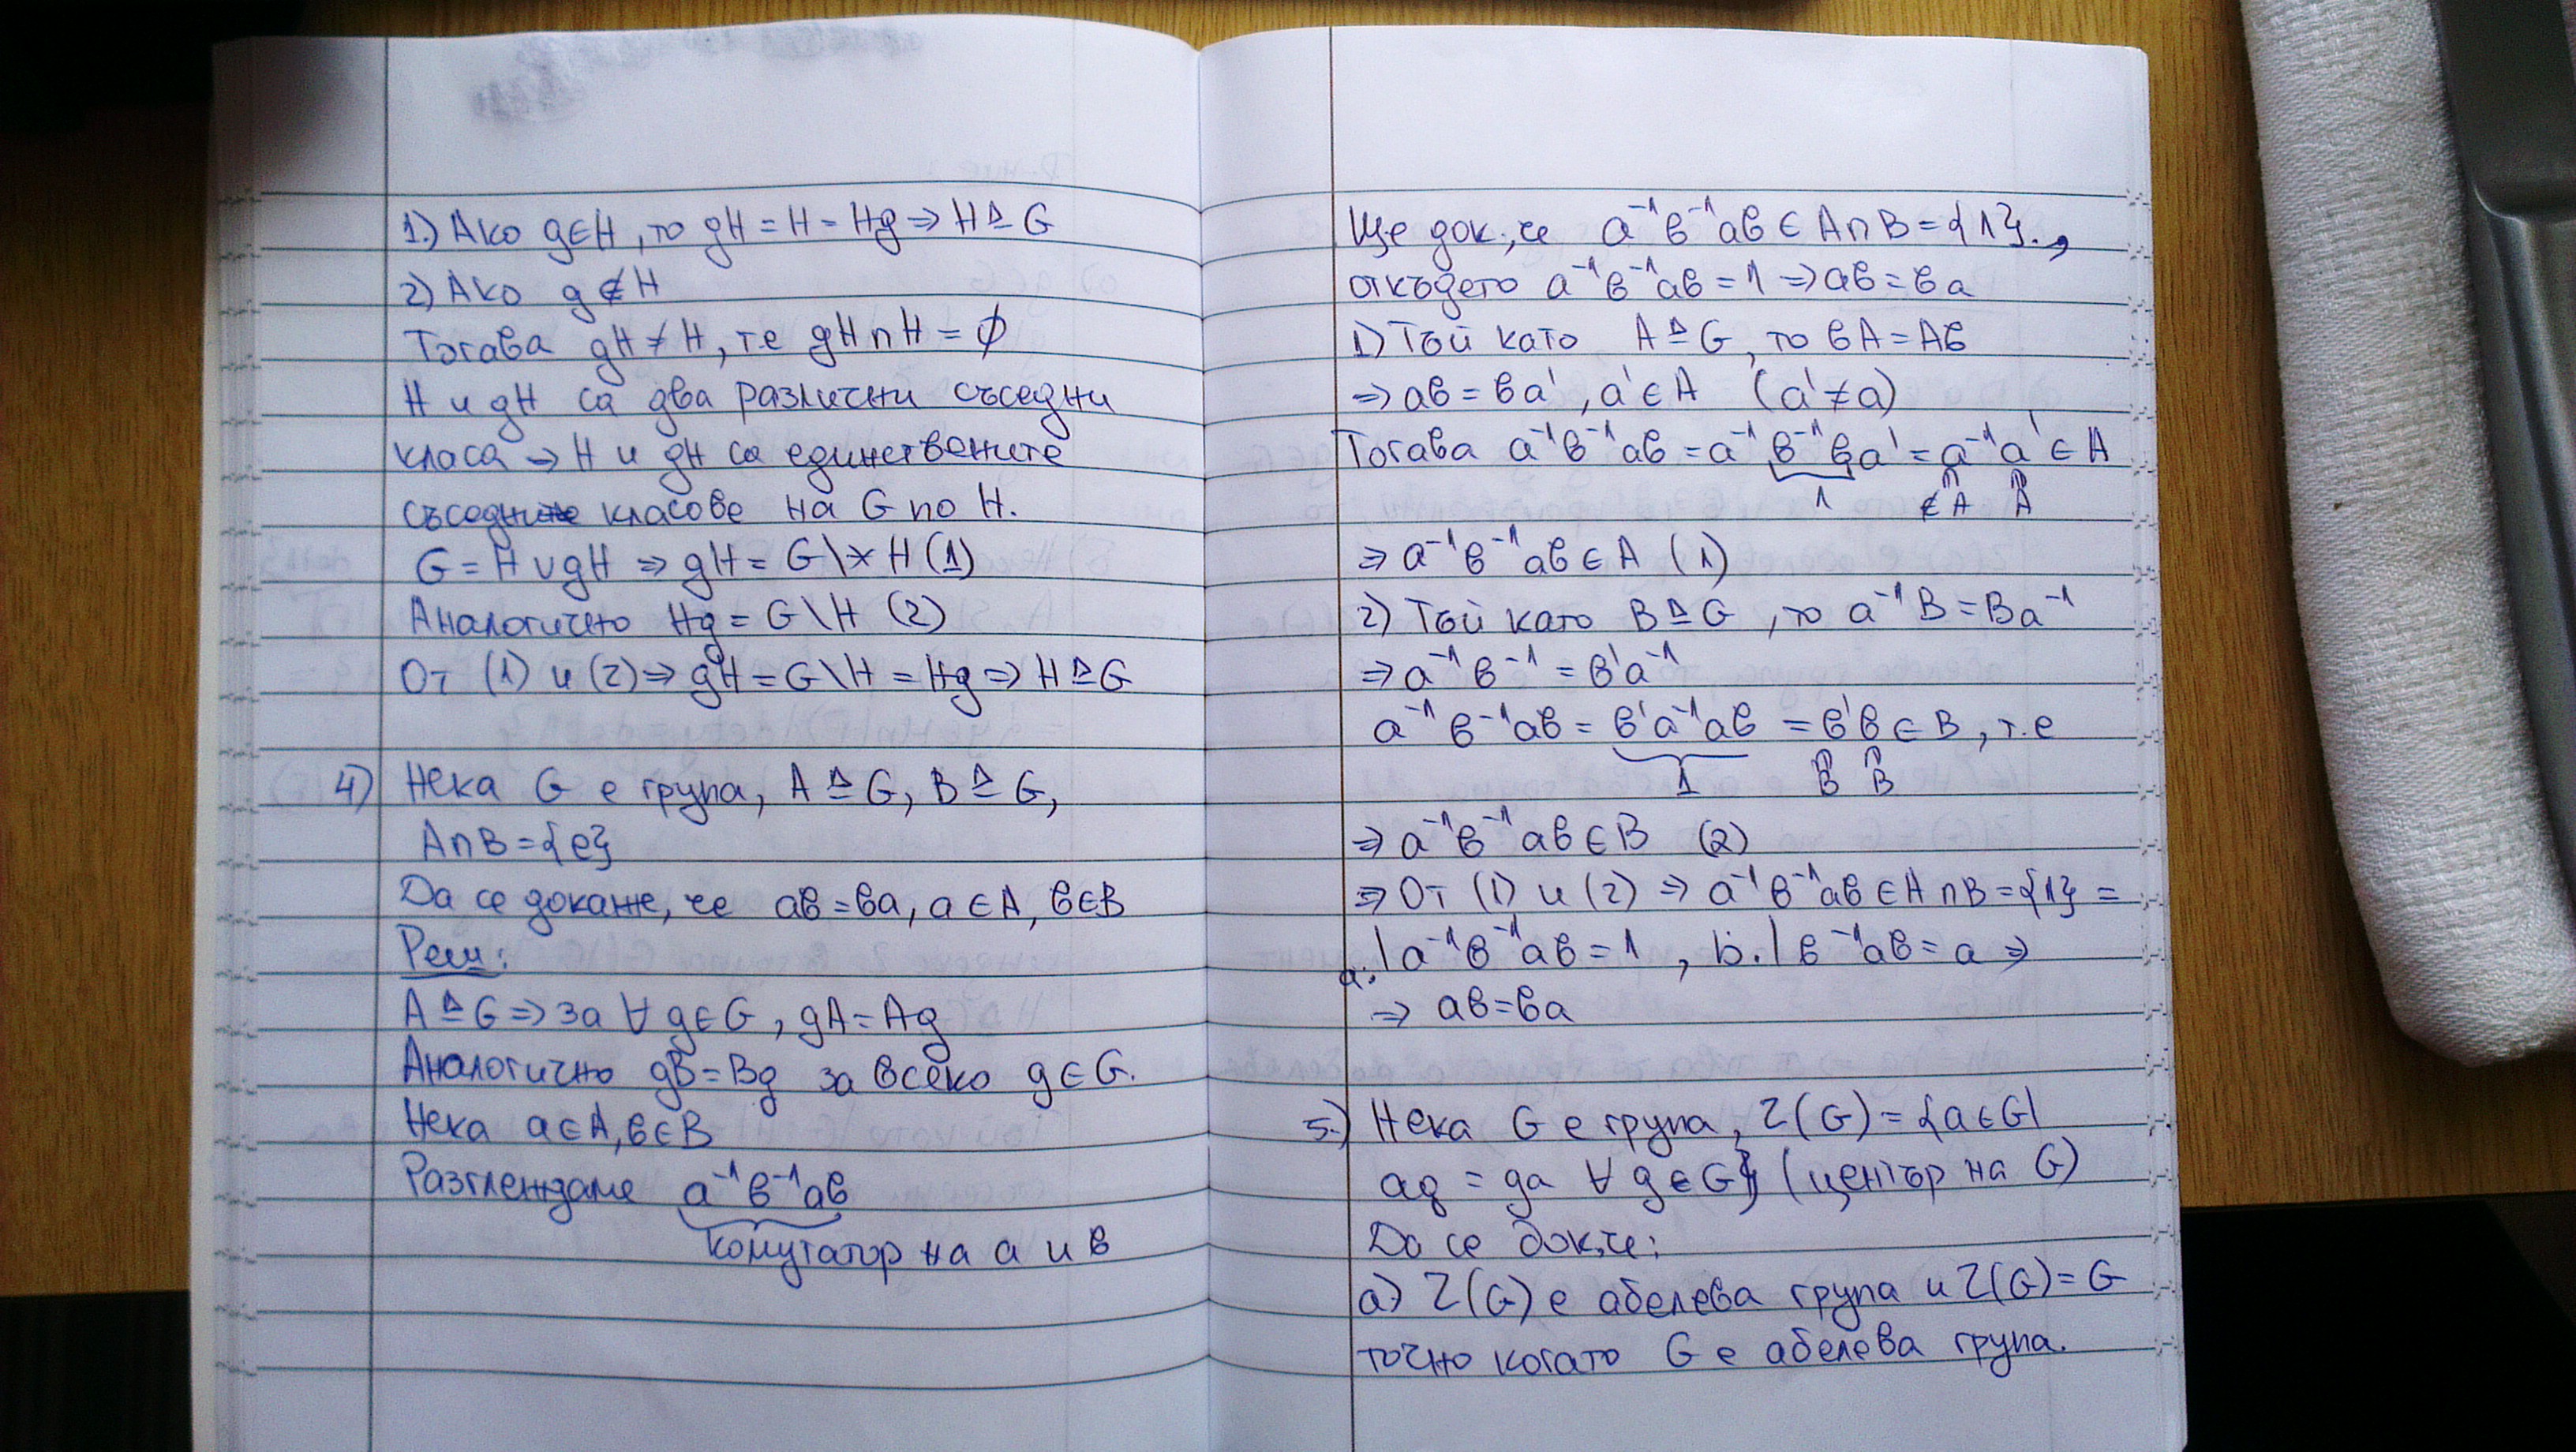 1.) Ако g∈H, то gH = H = Hg ⇒ H ⊴ G
2) Ако g ∉ H
Тогава gH ≠ H, т.е gH ∩ H = ∅
H и gH са два различни съседни
класа → H и gH са единствените
съседни класове на G по H.
G = H ∪ gH ⇒ gH = G \ H (1)
Аналогично Hg = G \ H (2)
От (1) и (2) ⇒ gH = G \ H = Hg ⇒ H ⊴ G
4) Нека G е група, A ⊴ G, B ⊴ G,
A∩B = {e}
Да се докаже, че ab = ba, a ∈ A, b∈B
Реш:
A ⊴ G ⇒ за ∀ g∈G, gA = Ag
Аналогично gB = Bg за всяко g ∈ G.
Нека a∈A, b∈B
Разглеждаме a⁻¹b⁻¹ab
комутатор на a и b
Ще док., че a⁻¹b⁻¹ab ∈ A∩B = {1}.,
откъдето a⁻¹b⁻¹ab = 1 ⇒ ab = ba
1) Тъй като A ⊴ G, то bA = Ab
⇒ ab = ba', a' ∈ A (a' ≠ a)
Тогава a⁻¹b⁻¹ab = a⁻¹b⁻¹ba' = a⁻¹a' ∈ A
1 ∈ A A
⇒ a⁻¹b⁻¹ab ∈ A (1)
2) Тъй като B ⊴ G, то a⁻¹B = Ba⁻¹
⇒ a⁻¹b⁻¹ = b'a⁻¹
a⁻¹b⁻¹ab = b'a⁻¹ab = b'b ∈ B, т.е
1 B B
⇒ a⁻¹b⁻¹ab ∈ B (2)
⇒ От (1) и (2) ⇒ a⁻¹b⁻¹ab ∈ A∩B = {1} =
a. | a⁻¹b⁻¹ab = 1, b. | b⁻¹ab = a ⇒
⇒ ab = ba
5.) Нека G е група, Z(G) = {a∈G|
ag = ga ∀ g∈G} (център на G)
Да се док, че:
а) Z(G) е абелева група и Z(G) = G
точно когато G е абелева група.